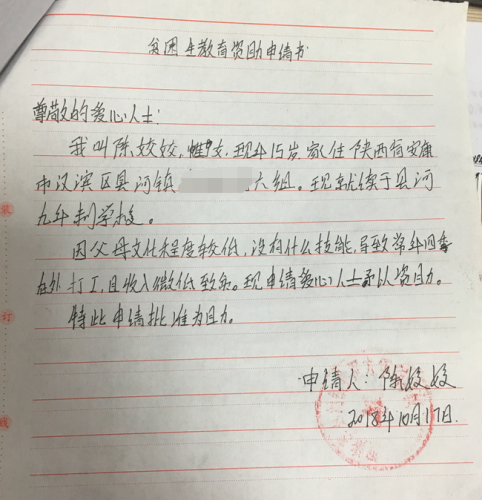 贫困生教育资助申请书
尊敬的爱心人士:
我叫陈姣姣,性别女,现年15岁,家住陕西省安康
市汉滨区县河镇 六组。现就读于县河
九年制学校。
因父母文化程度较低,没有什么技能,导致常年四季
在外打工,且收入微低致贫。现申请爱心人士予以资助。
特此申请批准为目力。
申请人:陈姣姣
2018年10月17日.
装
订
线